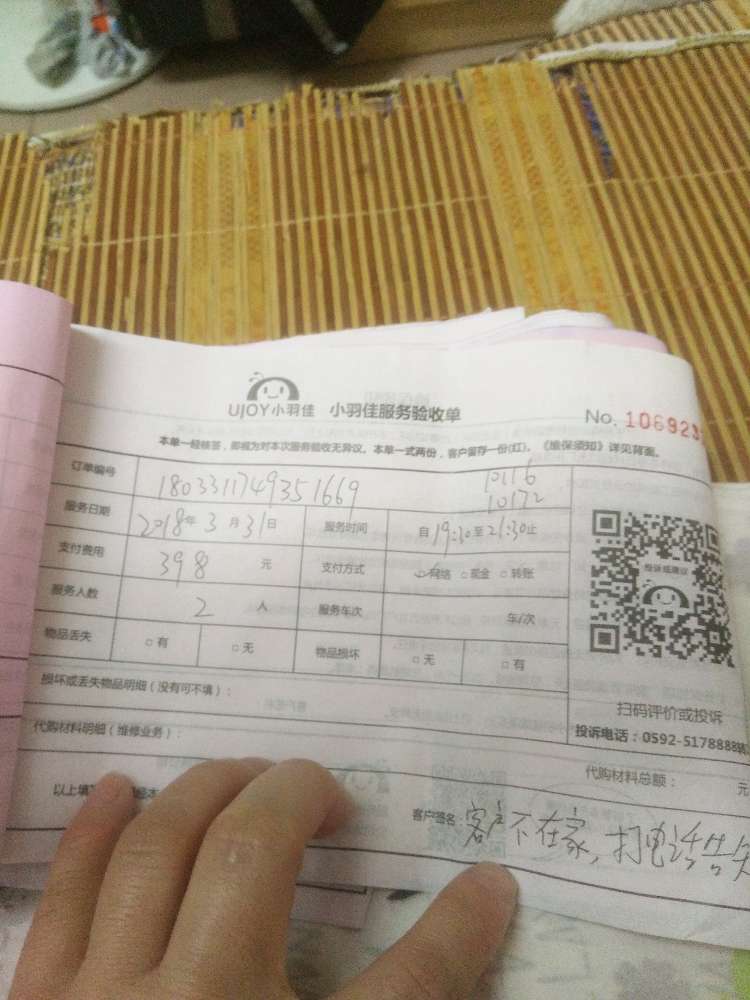 UJOY小羽佳 小羽佳服务验收单 No. 106923
本单一经核签，即视为对本次服务验收无异议。本单一式两份，客户留存一份(红)。《维保须知》详见背面。
订单编号 1803311749351669 10116
10172
服务日期 2018年3月31日 服务时间 自19:30至21:30止
支付费用 398 元 支付方式 网络 □现金 □转账
服务人数 2 人 服务车次 车/次
物品丢失 □有 □无 物品损坏 □无 □有
投诉或建议
扫码评价或投诉
投诉电话：0592-5178888转
损坏或丢失物品明细（没有可不填）：
代购材料明细（维修业务）： 代购材料总额： 元
以上填
客户签名：客户不在家，打电话告知